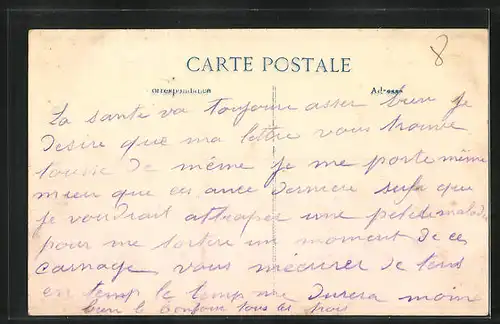 8
CARTE POSTALE
Correspondance Adresse
La santé va toujour asser bien je
desire que ma lettre vous trouve
tousie de même je me porte même
mieu que ces ance derniere sufi que
je voudrait attraper une petite maladie
pour me sortir un moment de ce
carnage vous mécrirer de tens
en temp le temp me durera moin
bien le bonjour tous les trois